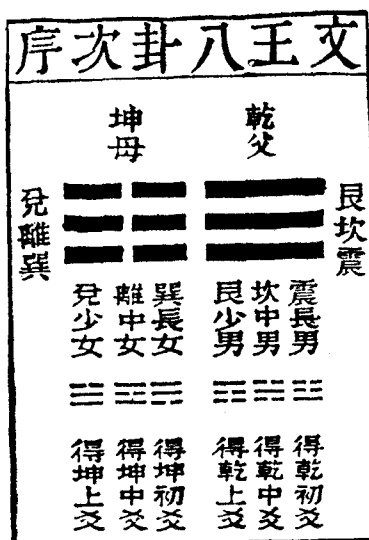 文王八卦次序
乾父
坤母
艮坎震
兌離巽
震長男
坎中男
艮少男
巽長女
離中女
兌少女
得乾初爻
得乾中爻
得乾上爻
得坤初爻
得坤中爻
得坤上爻